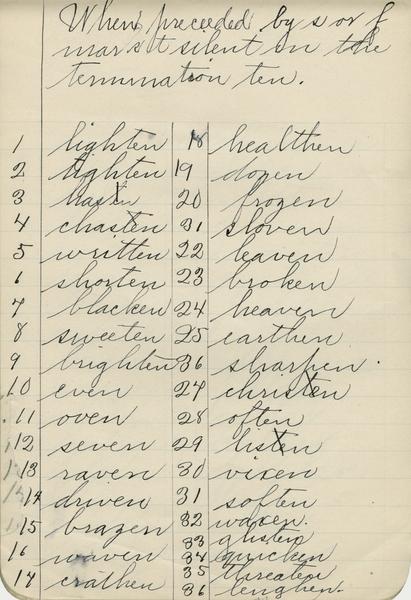 When preceeded by s or f
mars t silent in the
termination ten.
1 lighten
2 tighten
3 hasten
4 chasten
5 written
6 shorten
7 blacken
8 sweeten
9 brighten
10 even
11 oven
12 seven
13 raven
14 driven
15 brazen
16 waven
17 crathen
18 healthen
19 dozen
20 frozen
21 sloven
22 leaven
23 broken
24 heaven
25 earthen
26 sharpen.
27 christen
28 often
29 listen
30 vixen
31 soften
32 waxen.
33 glisten
34 quicken
35 threaten
36 lenghen.